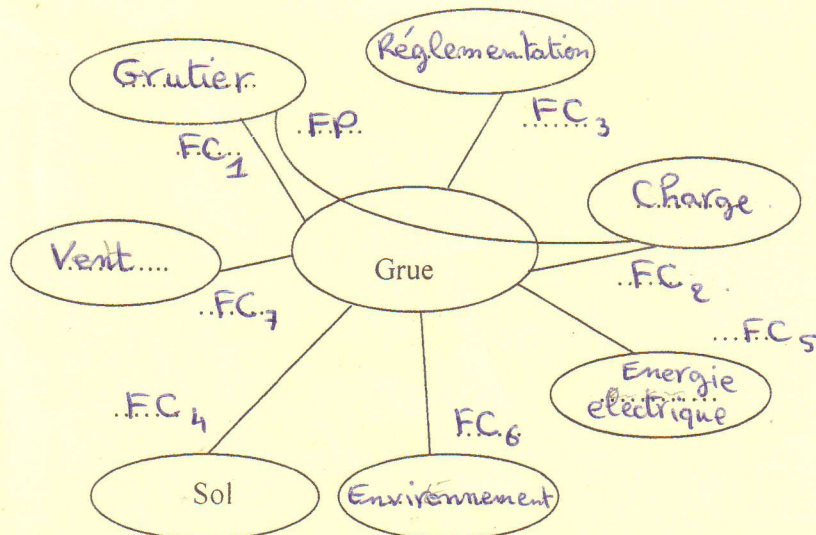 Réglementation
Grutier
FP
FC3
FC1
Charge
Vent
Grue
FC2
FC7
FC5
Energie
electrique
FC4
FC6
Sol
Environnement